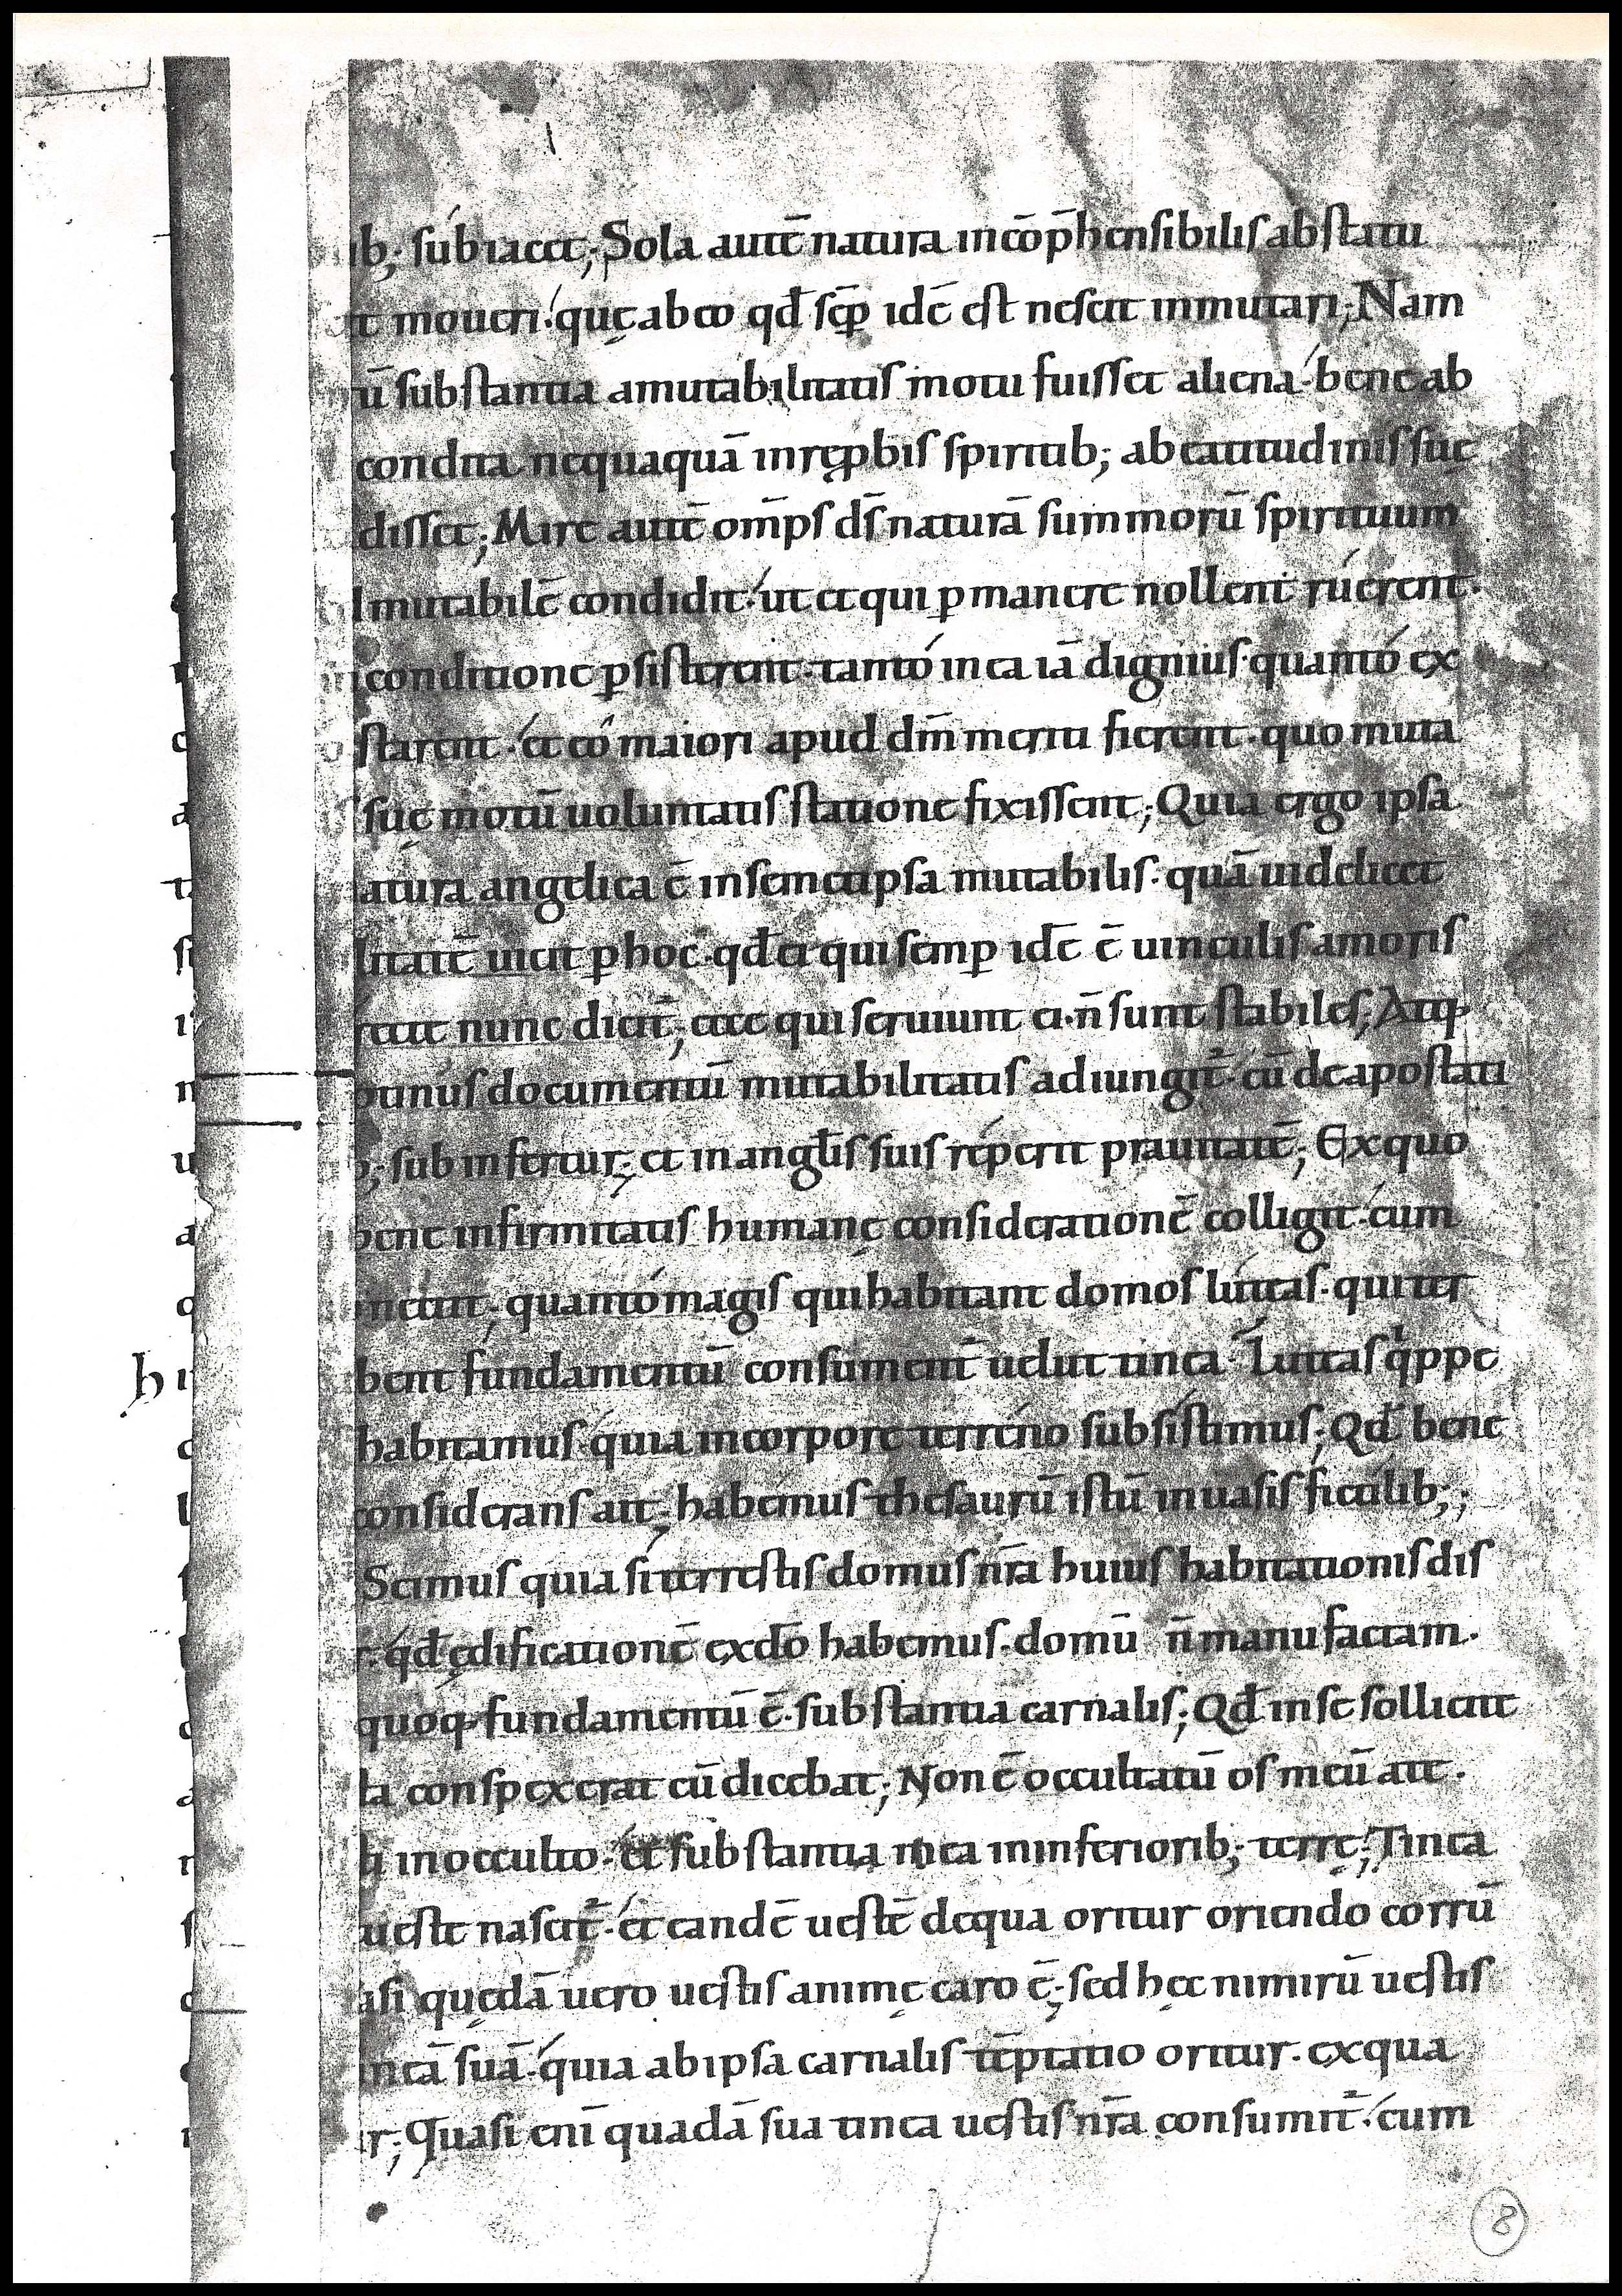 ib; subiacet; Sola autē natura incōp̄hensibilis ab statu
t moueri. quę ab eo qđ sēp idē est nescit inmutari; Nam
ū substantia amutabilitatis motu fuisset aliena. bene ab
condita nequaquā inreꝓbis spiritib; ab eatitudinis suę
disset; Mire autē om̄ps d̄s naturā summorū spirituum
mutabilē condidit. ut et qui ꝑmanere nollent ruerent.
conditione ꝑsisterent. tanto inea iā dignius. quanto ex
starent. et eo maiori apud dm̄ meritu fierent. quo muta
suę motū uoluntatis statione fixissent; Quia ergo ipsa
atura angelica ē insemetipsa mutabilis. quā uidelicet
litatē uicit ꝑ hoc. qđ ei qui semꝑ idē ē uinculis amoris
nunc dicit̄; ecce qui seruiunt ei. n̄ sunt stabiles; Atq;
tinus documentū mutabilitatis adiungit̄. cū deapostati
b; sub infertur; et in angl̄is suis repperit prauitatē; Exquo
bene infirmitatis humanę considerationē colligit. cum
quanto magis qui habitant domos luteas. qui ter
bent fundamentū consument̄ uelut tinea. Luteas qⁱppe
habitamus. quia incorpore terreno subsistimus; Qđ bene
considerans ait; habemus thesaurū istū inuasis fictilib;;
Scimus quia si terrestis domus nr̄a huius habitationis dis
r. qđ ędificationē exdō habemus. domū n̄ manu factam.
quoq; fundamentū ē. substantia carnalis; Qđ inse sollicite
la conspexerat cū dicebat; Non ē occultatū os meū ate.
ti inocculto. et substantia mea ininferiorib; terrę; Tinea
ueste nascit̄. et eandē uestē dequa oritur oriendo corrū
asi quędā uero uestis animę caro ē; sed hęc nimirū uestis
neā suā. quia abipsa carnalis tēptatio oritur. exqua
r; Quasi enī quadā sua tinea uestis nr̄a consumit̄. cum
8